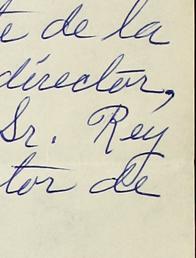 te de la
director,
Sr. Rey
tor de